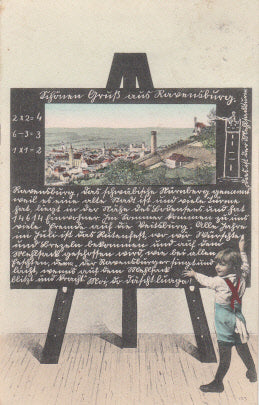 Schönen Gruß aus Ravensburg.
2x2=4
6-3=3
1x1=2
Das ist der Mehlsackturm
Ravensburg, das schwäbische Nürnberg genannt
weil es eine alte Stadt ist und viele Türme
hat, liegt in der Nähe des Bodensees und hat
14614 Einwohner. Im Sommer kommen zu uns
viele Fremde auf die Veitsburg. Alle Jahre
im Juli ist das Rutenfest, wo wir Würstchen
und Brezeln bekommen und auf dem
Mehlsack geschossen wird, wie bei allen
Festen, denn der Ravensburger singt und
lacht, wenns auf dem Mehlsack
blitzt und kracht.